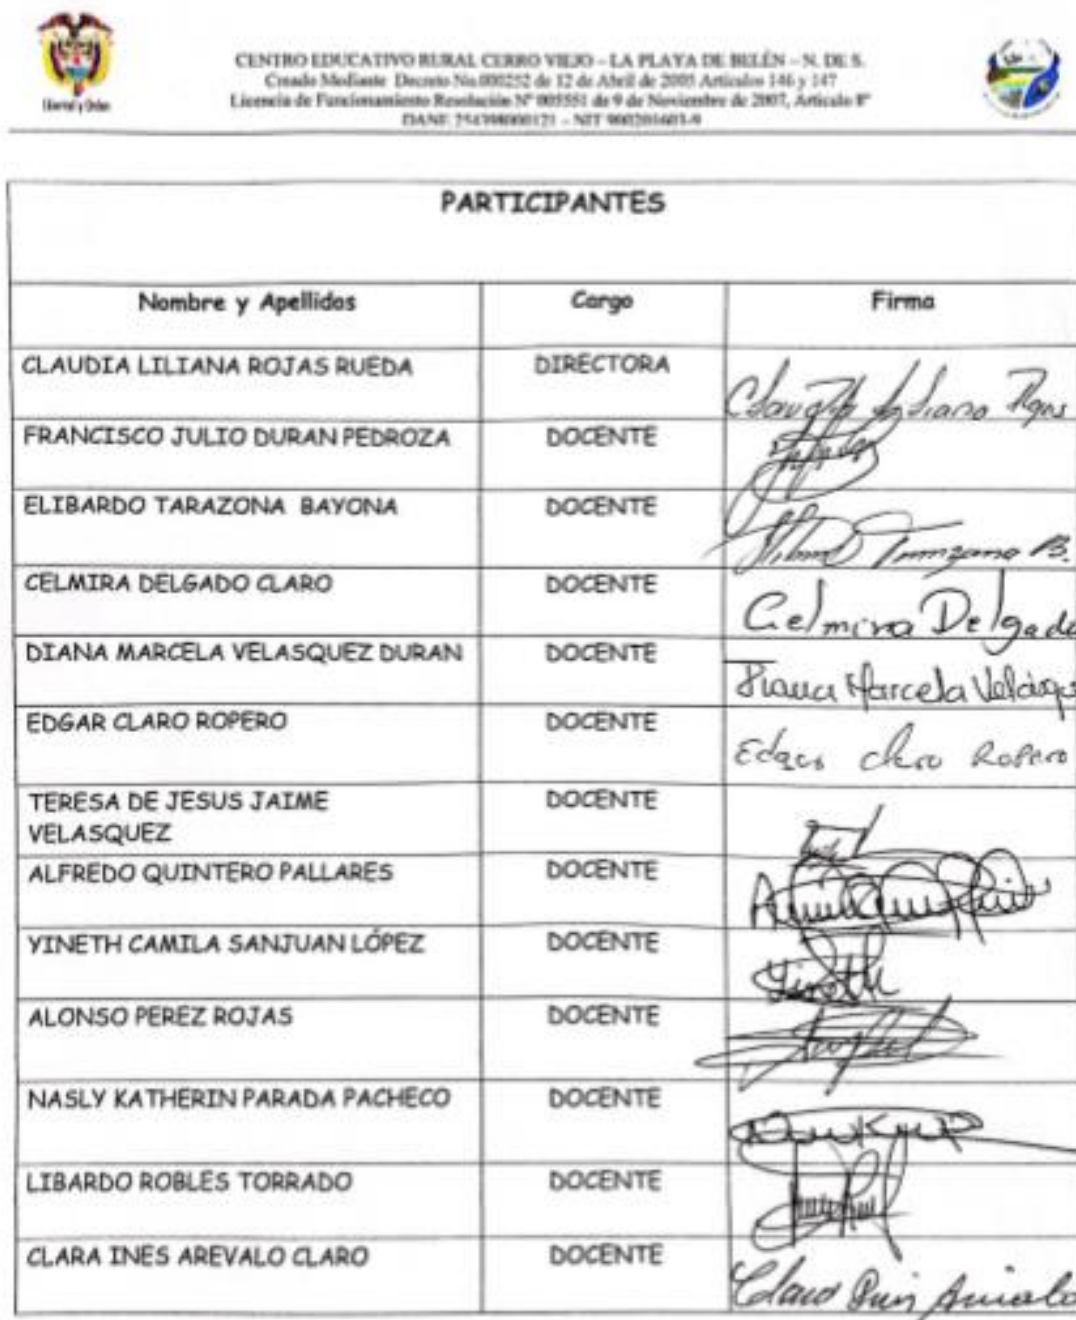 CENTRO EDUCATIVO RURAL CERRO VIEJO – LA PLAYA DE BELÉN – N. DE S.
Creado Mediante Decreto No.000252 de 12 de Abril de 2005 Artículos 146 y 147
Licencia de Funcionamiento Resolución Nº 005551 de 9 de Noviembre de 2007, Artículo 8º
DANE 254398000121 – NIT 900201603-9
Libertad y Orden
PARTICIPANTES
Nombre y Apellidos Cargo Firma
CLAUDIA LILIANA ROJAS RUEDA DIRECTORA Claudia Liliana Rojas
FRANCISCO JULIO DURAN PEDROZA DOCENTE
ELIBARDO TARAZONA BAYONA DOCENTE
CELMIRA DELGADO CLARO DOCENTE Celmira Delgado
DIANA MARCELA VELASQUEZ DURAN DOCENTE Diana Marcela Velásque
EDGAR CLARO ROPERO DOCENTE Edgar Claro Ropero
TERESA DE JESUS JAIME DOCENTE
VELASQUEZ
ALFREDO QUINTERO PALLARES DOCENTE
YINETH CAMILA SANJUAN LÓPEZ DOCENTE Yineth
ALONSO PEREZ ROJAS DOCENTE
NASLY KATHERIN PARADA PACHECO DOCENTE
LIBARDO ROBLES TORRADO DOCENTE
CLARA INES AREVALO CLARO DOCENTE